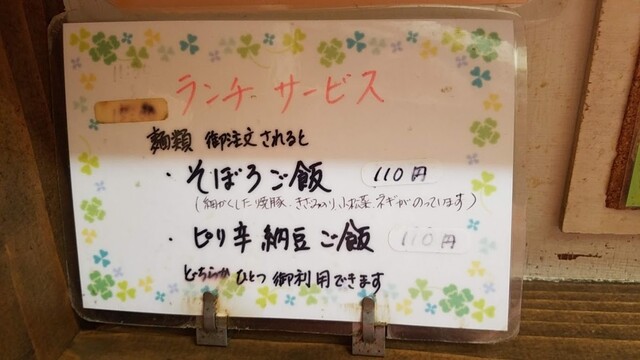 ランチ サービス
麺類 御注文されると
・そぼろご飯 110円
(細かくした焼豚、きざみのり、小松菜 ネギがのっています)
・ピリ辛納豆ご飯 110円
どちらかひとつ御利用できます